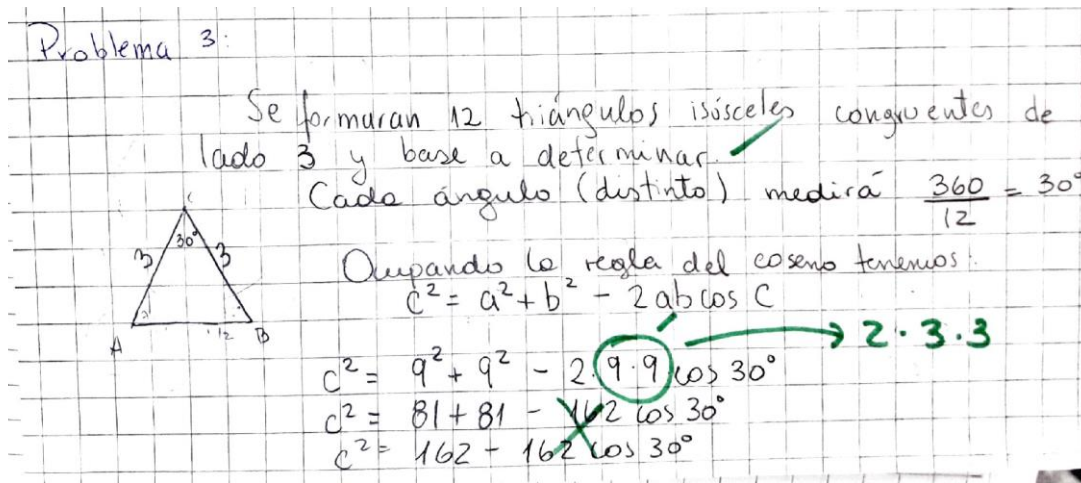 Problema 3:
Se formaran 12 triángulos isósceles congruentes de
lado 3 y base a determinar.
Cada ángulo (distinto) medirá 360/12 = 30°
C
30°
3 3
A 12 B
Ocupando la regla del coseno tenemos:
c² = a² + b² - 2ab cos C
2·3·3
c² = 9² + 9² - 2·9·9 cos 30°
c² = 81 + 81 - 162 cos 30°
c² = 162 - 162 cos 30°